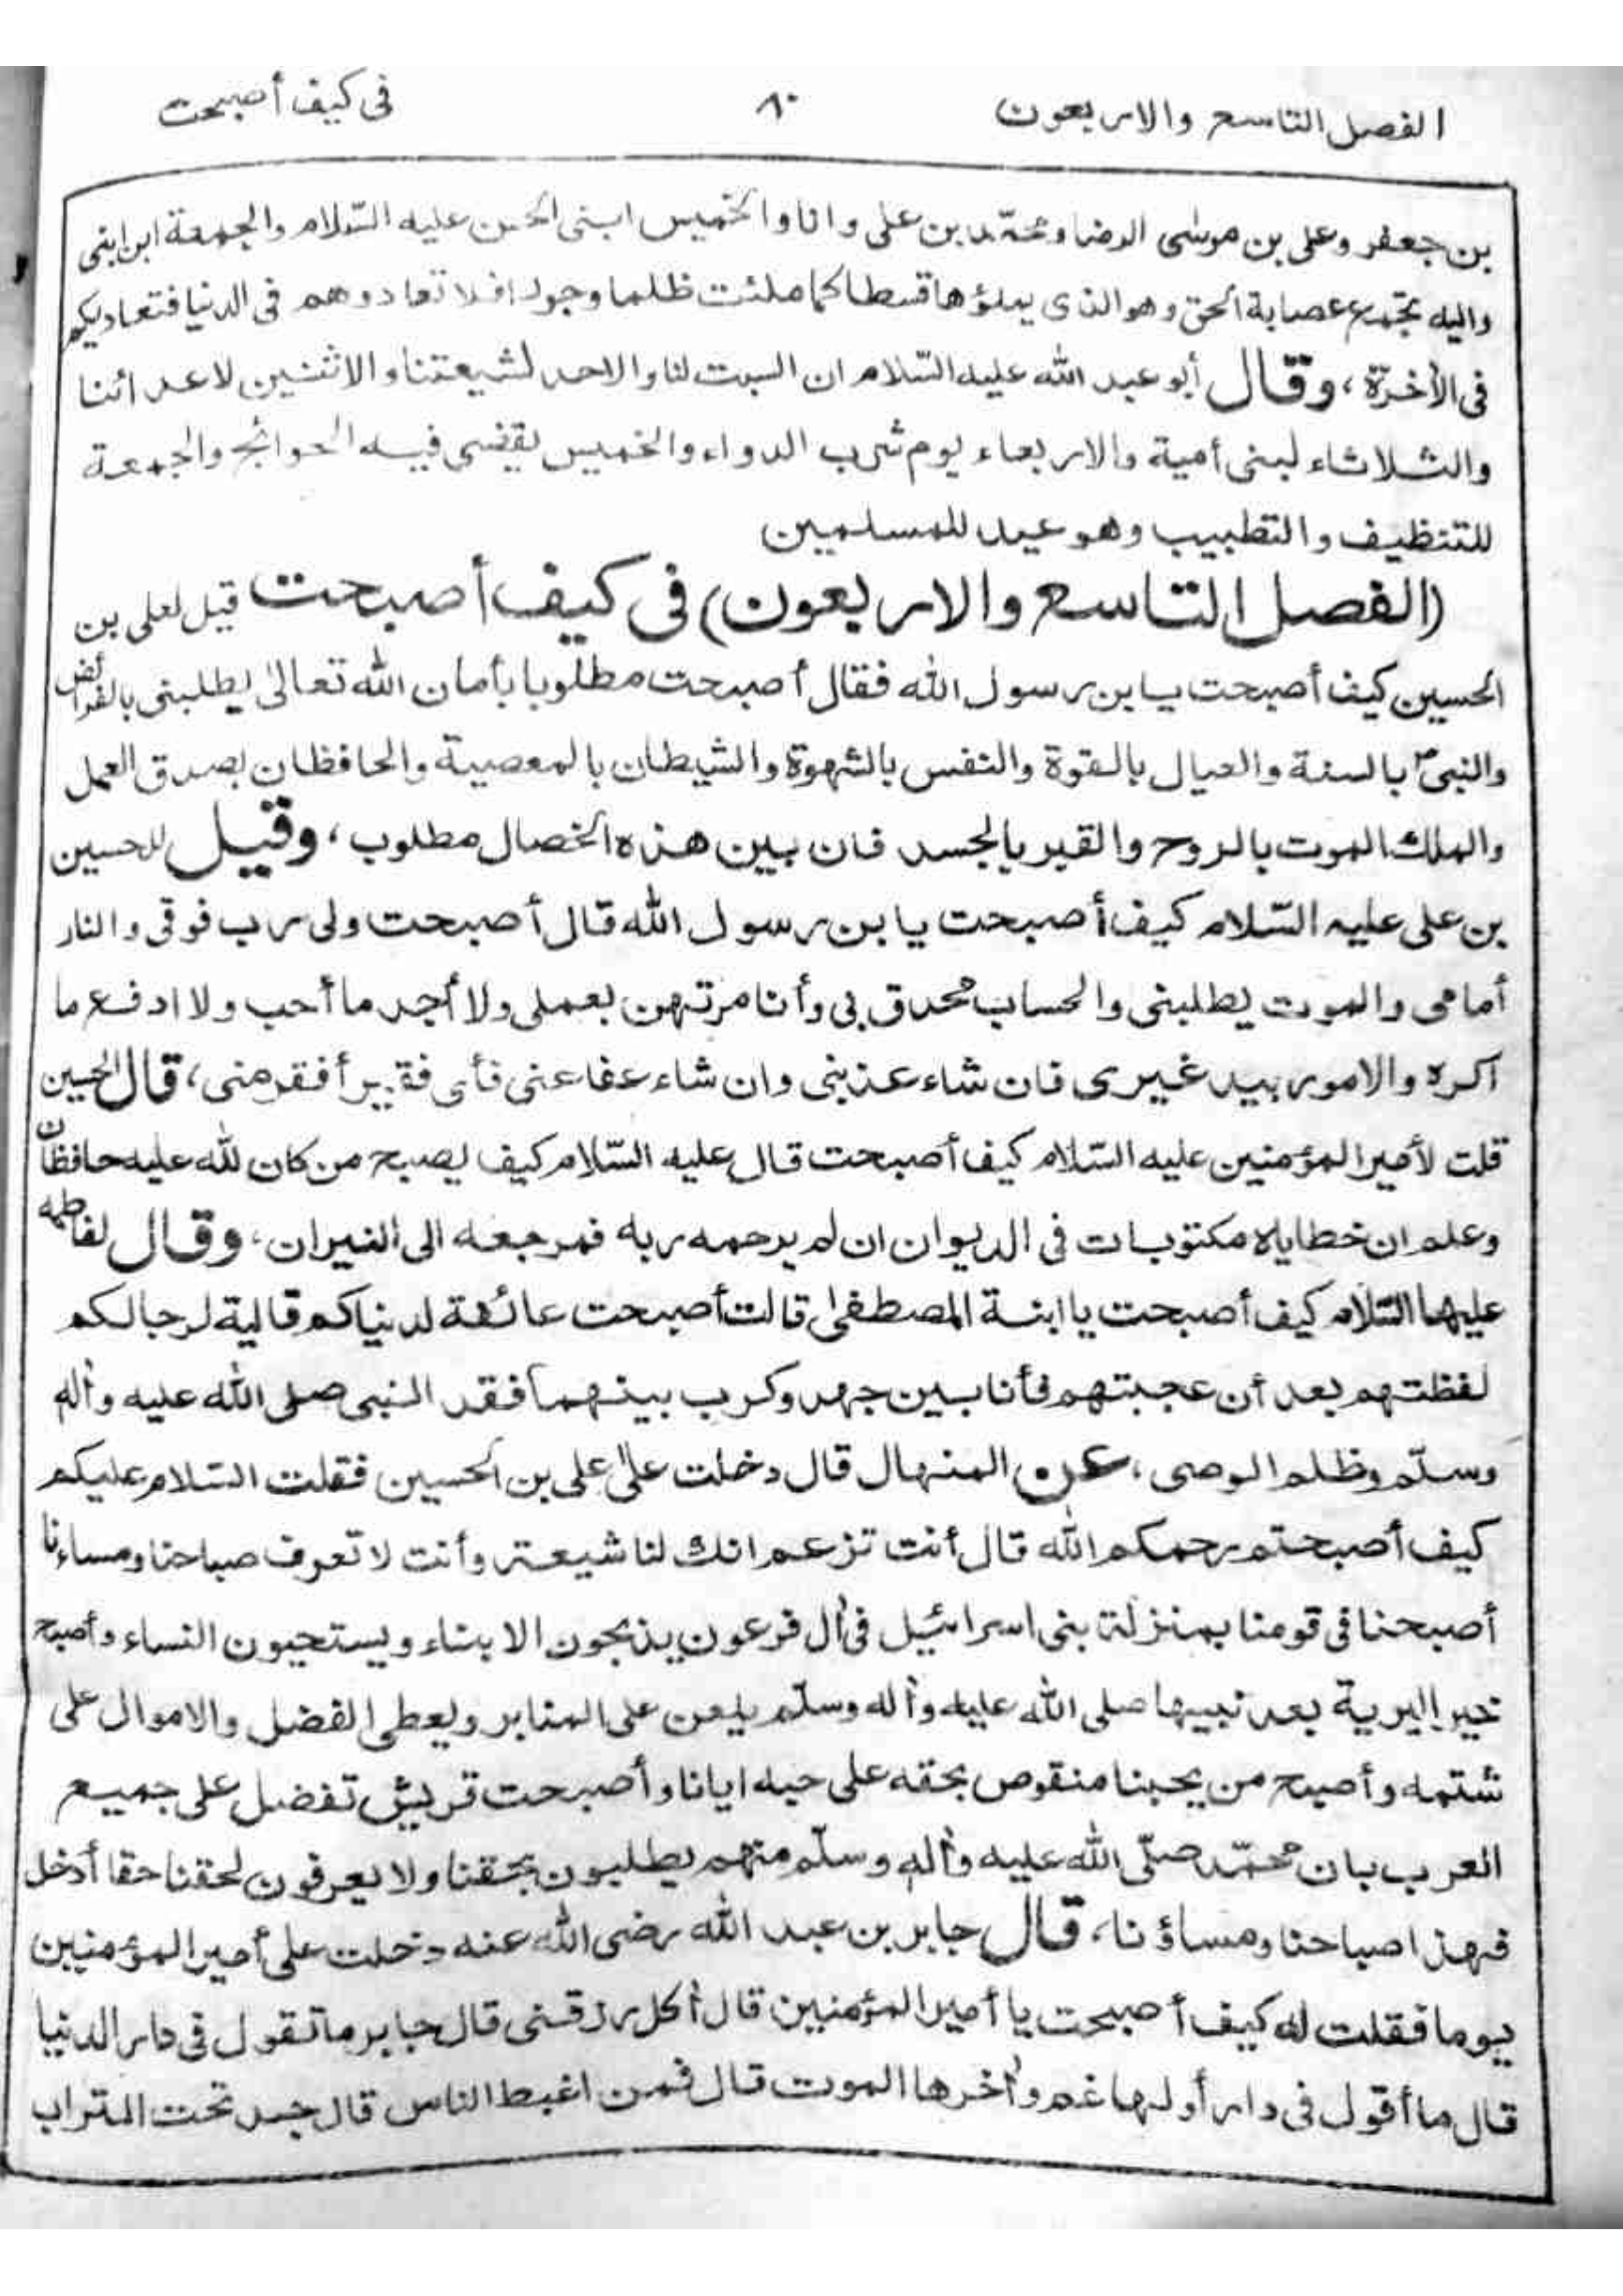 الفصل التاسع والاربعون ٨٠ فى كيف أصبحت
بن جعفر وعلى بن موسى الرضا ومحمّد بن على وانا والخميس ابنى الحسن عليه السّلام والجمعة ابن ابنى
واليه تجتمع عصابة الحق وهو الذى يملؤها قسطا كما ملئت ظلما وجورا فلا تعادوهم فى الدنيا فتعاديكم
فى الأخرة، وقال أبو عبد الله عليه السّلام ان السبت لنا والاحد لشيعتنا والاثنين لاعدائنا
والثلاثاء لبنى أمية والاربعاء يوم شرب الدواء والخميس يقضى فيه الحوائج والجمعة
للتنظيف والتطبيب وهو عيد للمسلمين
(الفصل التاسع والاربعون) فى كيف أصبحت قيل لعلى بن
الحسين كيف أصبحت يا بن رسول الله فقال أصبحت مطلوبا بأمان الله تعالى يطلبنى بالفرائض
والنبى ص بالسنة والعيال بالقوة والنفس بالشهوة والشيطان بالمعصية والحافظان بصدق العمل
والملك الموت بالروح والقبر بالجسد فان بين هذه الخصال مطلوب، وقيل للحسين
بن على عليه السّلام كيف أصبحت يا بن رسول الله قال أصبحت ولى رب فوقى والنار
أمامى والموت يطلبنى والحساب محدق بى وأنا مرتهن بعملى ولا أجد ما أحب ولا ادفع ما
اكره والامور بيد غيرى فان شاء عذبنى وان شاء عفا عنى فأى فقير أفقر منى، قال الحسين
قلت لأمير المؤمنين عليه السّلام كيف أصبحت قال عليه السّلام كيف يصبح من كان لله عليه حافظان
وعلم ان خطاياه مكتوبات فى الديوان ان لم يرحمه ربه فمرجعه الى النيران، وقال لفاطمه
عليها السّلام كيف أصبحت يا ابنة المصطفى قالت أصبحت عائفة لدنياكم قالية لرجالكم
لفظتهم بعد أن عجبتهم فأنا بين جهد وكرب بينهما فقد النبى صلى الله عليه وأله
وسلّم وظلم الوصى، عن المنهال قال دخلت على على بن الحسين فقلت السّلام عليكم
كيف أصبحتم رحمكم الله قال أنت تزعم انك لنا شيعة وأنت لا تعرف صباحنا ومساءنا
أصبحنا فى قومنا بمنزلة بنى اسرائيل فى أل فرعون يذبحون الابناء ويستحيون النساء وأصبح
خير البرية بعد نبيها صلى الله عليه وأله وسلّم يلعن على المنابر ويعطى الفضل والاموال على
شتمه وأصبح من يحبنا منقوص بحقه على حبه ايانا وأصبحت قريش تفضل على جميع
العرب بان محمّد صلّى الله عليه وأله وسلّم منهم يطلبون بحقنا ولا يعرفون لحقنا حقا أدخل
فهذا صباحنا ومساؤنا، قال جابر بن عبد الله رضى الله عنه دخلت على أمير المؤمنين
يوما فقلت له كيف أصبحت يا أمير المؤمنين قال أكل رزقنى قال جابر ما تقول فى دار الدنيا
قال ما أقول فى دار أولها غم وأخرها الموت قال فمن اغبط الناس قال جسد تحت التراب